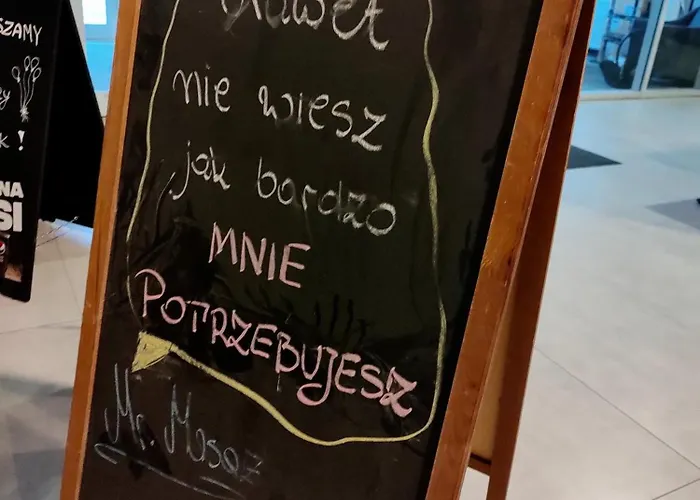 SZAMY
k!
NA
SI
Nawet
nie wiesz
jak bardzo
MNIE
POTRZEBUJESZ
Mr. Masaż